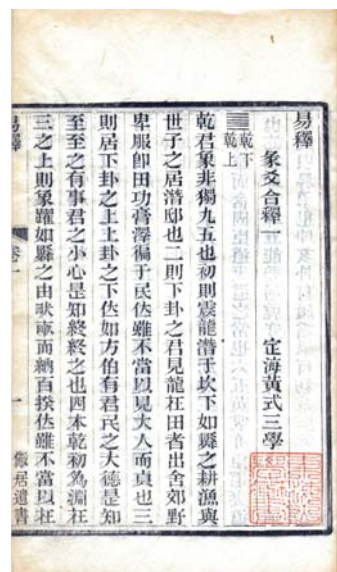 易釋
彖爻合釋一 定海黃式三學
䷀ 乾下 乾上
乾君象非獨九五也初則震龍潛于坎下如舜之耕漁與
世子之居潛邸也二則下卦之君見龍在田者出舍郊野
卑服卽田功膏澤徧于民位雖不當以見大人而貞也三
則居下卦之上上卦之下位如方伯有君民之大德是知
至至之有事君之小心是知終終之也四本乾初為淵在
三之上則象躍如舜之由畎畝而納百揆位雖不當以在
易釋 卷一 一 儆居遺書